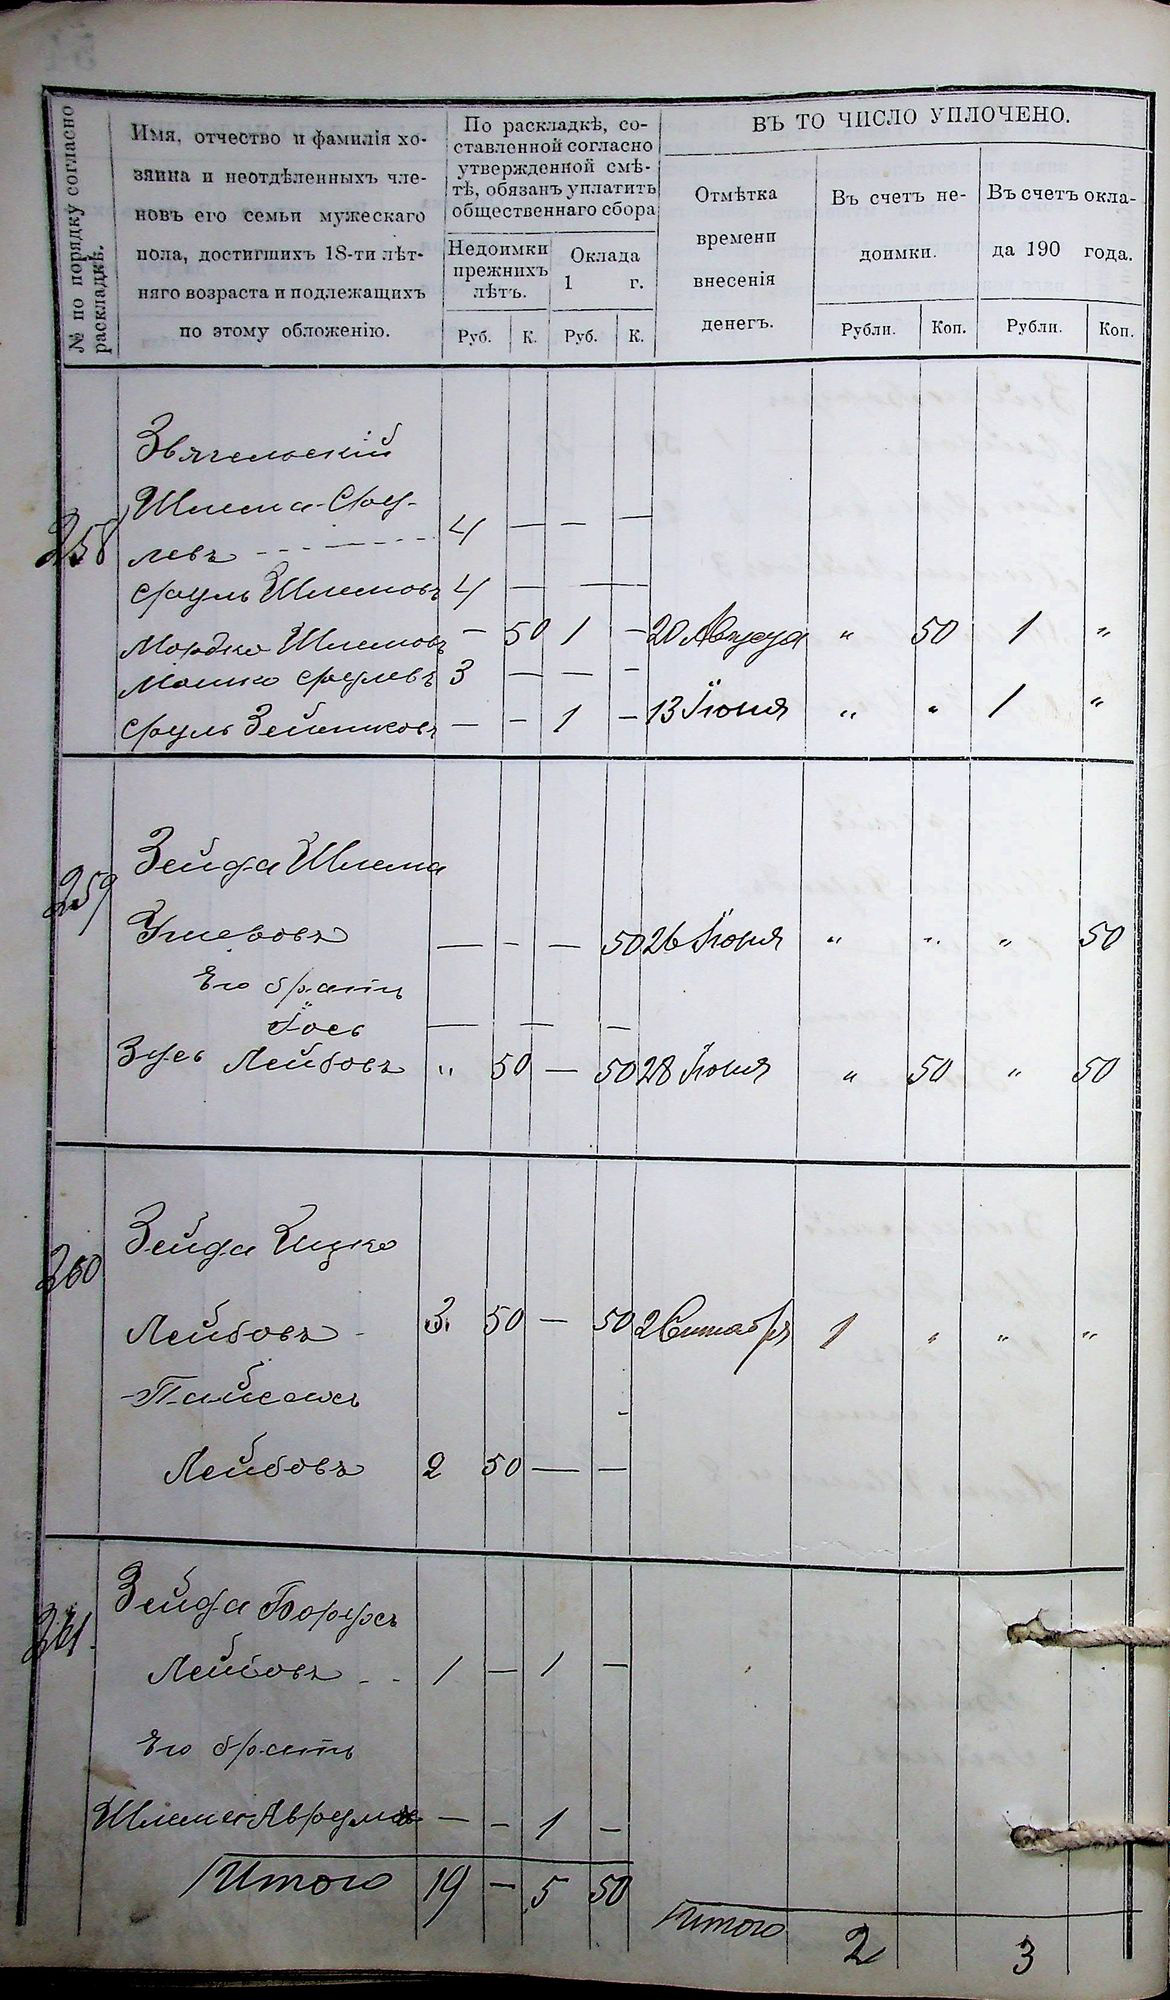 № по порядку согласно раскладкѣ.
Имя, отчество и фамилія хо-
зяина и неотдѣленныхъ чле-
новъ его семьи мужескаго
пола, достигшихъ 18-ти лѣт-
няго возраста и подлежащихъ
по этому обложенію.
По раскладкѣ, со-
ставленной согласно
утвержденной смѣ-
тѣ, обязанъ уплатить
общественнаго сбора
Недоимки
прежнихъ
лѣтъ.
Оклада
1 г.
Руб. К. Руб. К.
ВЪ ТО ЧИСЛО УПЛОЧЕНО.
Отмѣтка
времени
внесенія
денегъ.
Въ счетъ не-
доимки.
Рубли. Коп.
Въ счетъ окла-
да 190 года.
Рубли. Коп.
258
Звягельскій
Шлема-Сру-
левъ 4 — — —
Сруль Шлемовъ 4 — —
Мордко Шлемовъ — 50 1 — 20 Августа " 50 1 "
Мошко Срулевъ 3 — — —
Сруль — — 1 — 13 Іюня " " 1 "
259
Зейда Шлема
— — — 50 26 Іюня " " " 50
Его братъ
Іось — — —
Зусь Лейбовъ " 50 — 50 28 Іюня " 50 " 50
260
Зейда Ицко
Лейбовъ 3 50 — 50 2 Сентября 1 " " "
Пайсахъ
Лейбовъ 2 50 — —
261.
Зейда Борухъ
Лейбовъ 1 — 1 —
Его братъ
Шлема Аврумъ — — 1 —
Итого 19 — 5 50
Итого 2 3